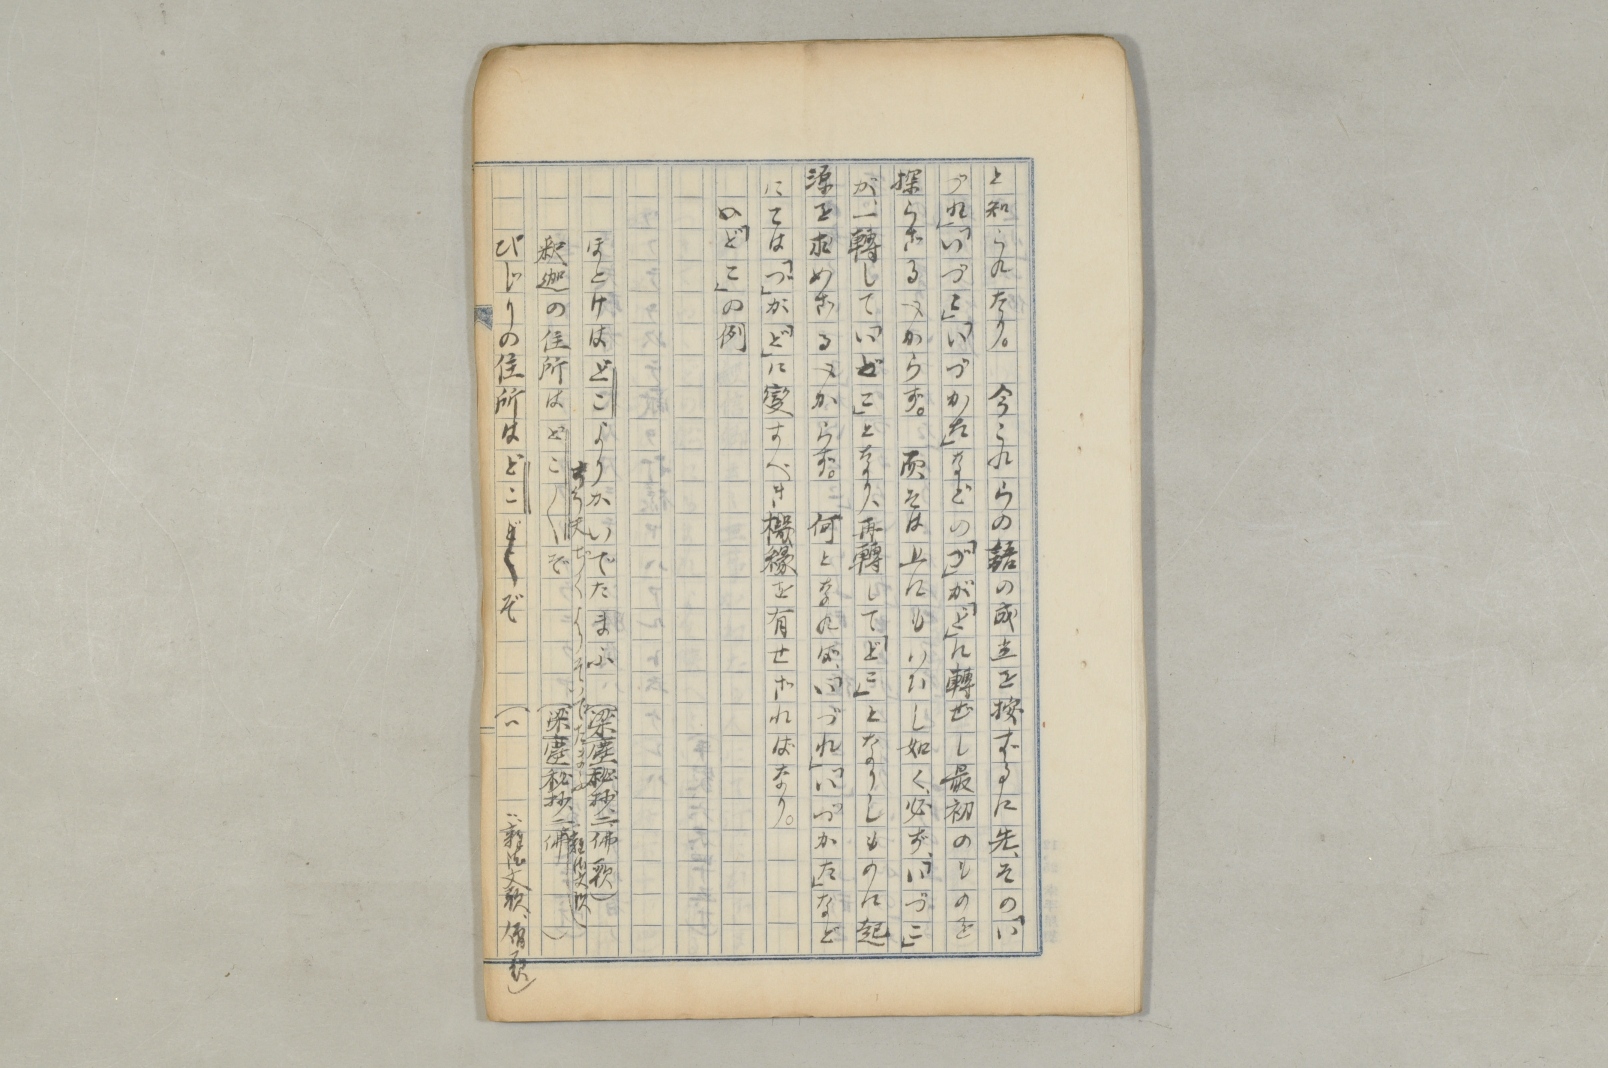 と知られたり。　今これらの語の成立を按ずるに先、その「い
づれ」「いづこ」「いづかた」などの「づ」が「ど」に轉ぜし最初のものを
探らざるべからず。　而そは上にもいひし如く、必ず、「いづこ」
が、一轉して「いどこ」となり、再轉して「どこ」となりしものに起
源を求めざるべからず。　何となれば、「いづれ」「いづかた」など
にては「づ」が「ど」に變すべき機縁を有せざればなり。
「どこ」の例
ほとけはどこよりかいでたまふ　（梁塵秘抄、二、佛歌）
釈迦の住所はどこ〳〵ぞ　（梁塵秘抄、二、佛
ひじりの住所はどこ〳〵ぞ　（〃　〃、雜法文歌、僧歌）